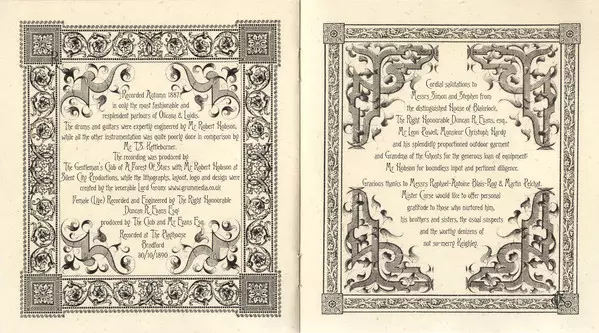 Recorded Autumn 1887
in only the most fashionable and
resplendent parlours of Olicana & Loidis.
The drums and guitars were expertly engineered by Mr Robert Hobson,
while all the other instrumentation was quite poorly done in comparison by
Mr T.S. Kettleborner.
The recording was produced by
The Gentleman's Club of A Forest Of Stars with Mr Robert Hobson at
Silent City Productions, while the lithographs, layout, logo and design were
created by the venerable Lord Ferans www.grummedia.co.uk
Female (Live) Recorded and Engineered by The Right Honourable
Duncan R. Evans Esq
produced by The Club and Mr Evans Esq.
Recorded at The Arthouse
Bradford
30/10/1890
Cordial salutations to
Messrs Simon and Stephen from
the distinguished House of Blahrlock,
The Right Honourable Duncan R. Evans, esq.,
Mr Leon Powell, Monsieur Christoph Hardy
and his splendidly proportioned outdoor garment
and Grandma of the Ghosts for the generous loan of equipment.
Mr Hobson for boundless input and pertinent diligence.
Gracious thanks to Messrs Raphael-Antoine Blais-Roy & Martin Reichat.
Mister Curse would like to offer personal
gratitude to those who nurtured him,
his brothers and sisters, the usual suspects
and the worthy denizens of
not so-merry Keighley.